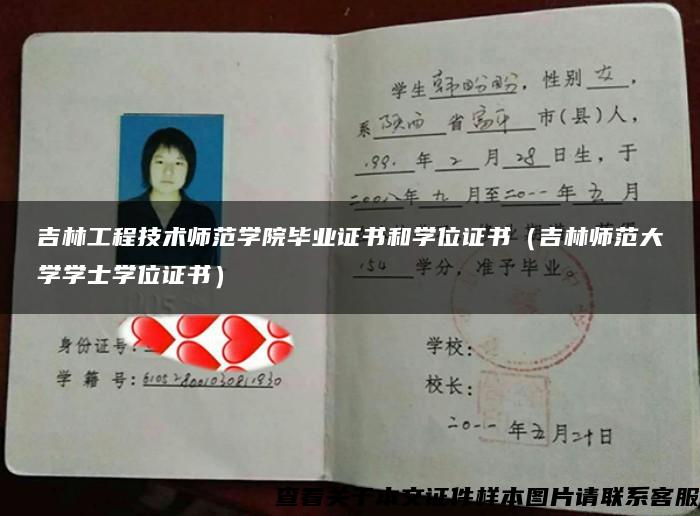 学生韩盼盼，性别女，
系陕西省富平市(县)人，
1991年2月28日生，于
二00八年九月至二0一一年五月
吉林工程技术师范学院毕业证书和学位证书（吉林师范大
学学士学位证书）
154学分，准予毕业。
身份证号：
学籍号：
学校：
校长：
二0一一年五月二十日
查看关于本文证件样本图片请联系客服